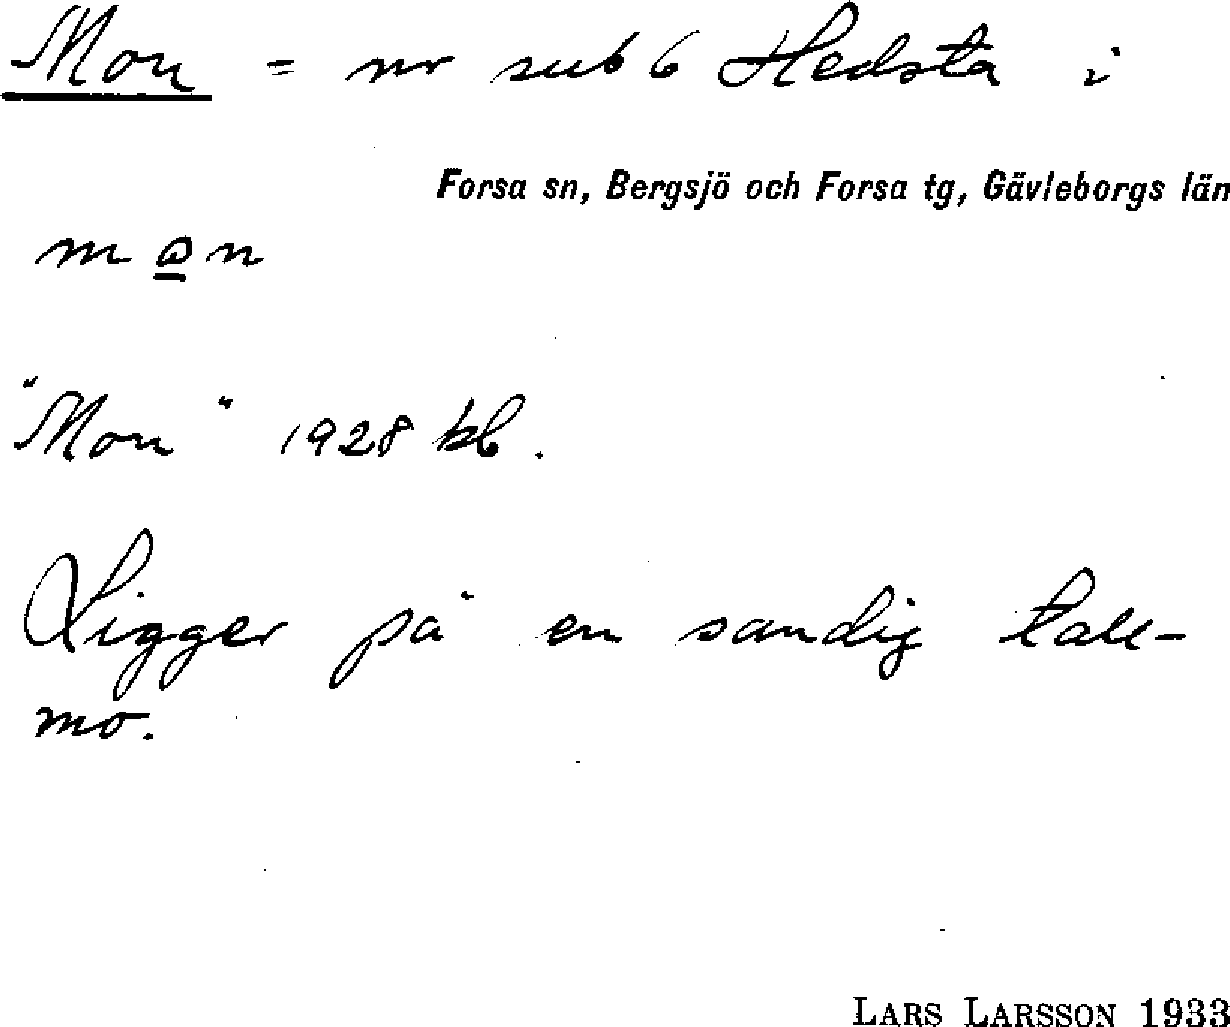 Mon = nr sub 6 Hedsta i
Forsa sn, Bergsjö och Forsa tg, Gävleborgs län
"Mon" 1928 kb.
Ligger på en sandig tall-
mo.
LARS LARSSON 1933